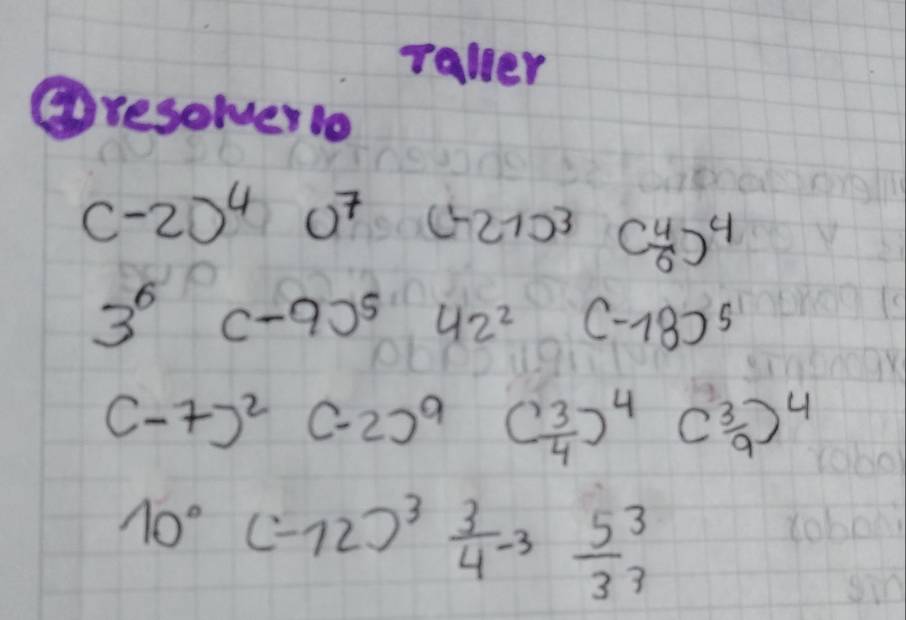 Taller
① resolverlo
(-2)⁴ 0⁷ (-21)³ (4/6)⁴
3⁶ (-9)⁵ 42² (-18)⁵
(-7)² (-2)⁹ (3/4)⁴ (3/9)⁴
10⁰ (-12)³ 3/4-3 5³/3³